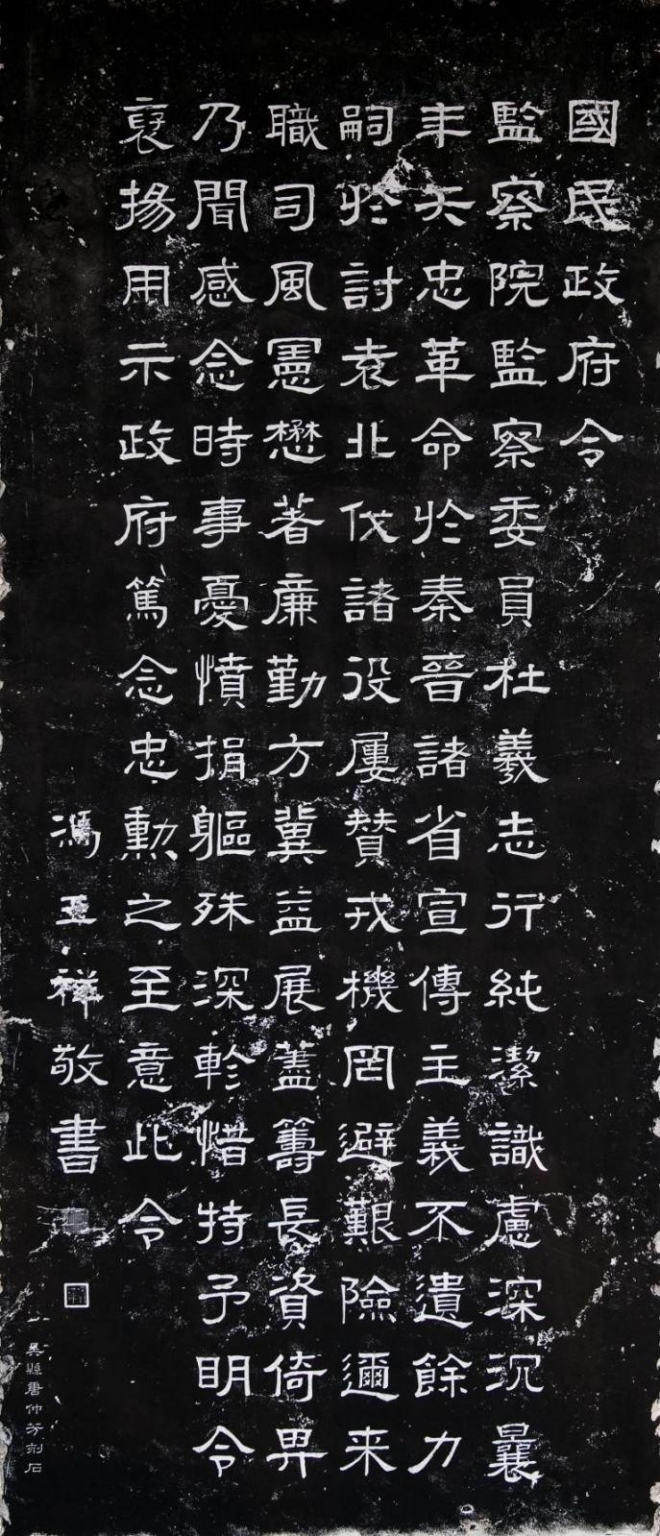 國民政府令
監察院監察委員杜羲志行純潔識慮深沉曩
年矢忠革命於秦晉諸省宣傳主義不遺餘力
嗣於討袁北伐諸役屢贊戎機罔避艱險邇来
職司風憲懋著廉勤方冀益展藎籌長資倚畀
乃聞感念時事憂憤捐軀殊深軫惜特予明令
褒揚用示政府篤念忠勳之至意此令
馮玉祥敬書
吳縣唐仲芳刻石